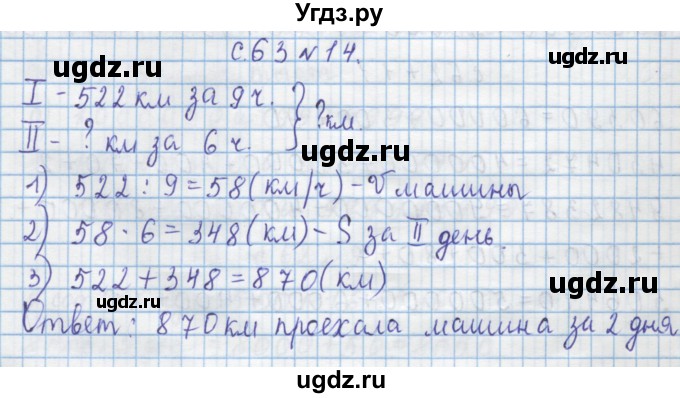 Угдз.ру
с.63 №14.
I - 522 км за 9 ч.
II - ? км за 6 ч. } ? км.
1) 522 : 9 = 58 (км/ч) - V машины
2) 58 · 6 = 348 (км) - S за II день.
3) 522 + 348 = 870 (км)
Ответ: 870 км проехала машина за 2 дня
ugdz.ru
ugdz.ru
ugdz.ru
ugdz.ru
ugdz.ru
ugdz.ru
ugdz.ru
ugdz.ru
ugdz.ru